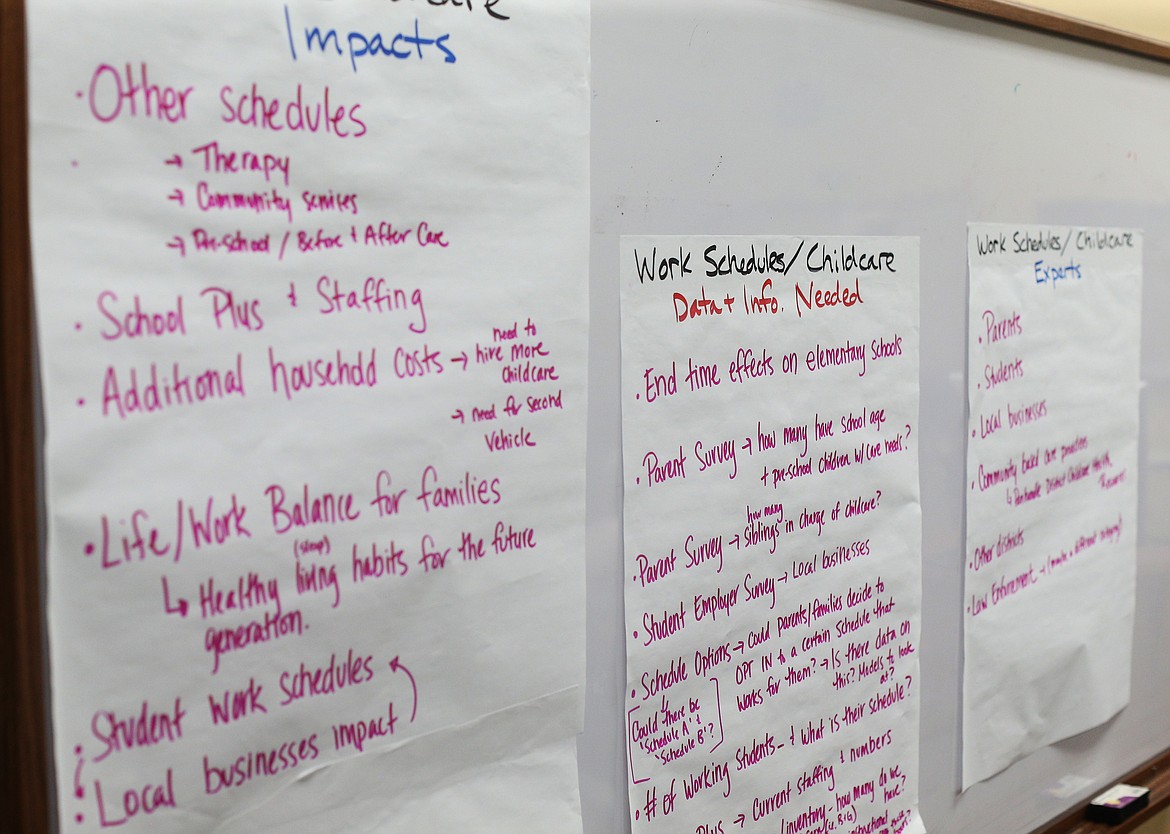 Impacts
· Other schedules
→ Therapy
→ Community services
→ Pre-school / Before + After Care
· School Plus + Staffing
· Additional household costs → need to
hire more
childcare
→ need for second
vehicle
· Life/Work Balance for families
(sleep)
↳ Healthy living habits for the future
generation.
· Student work schedules
· Local businesses impact
Work Schedules/Childcare
Data + Info. Needed
· End time effects on elementary schools
· Parent Survey → how many have school age
+ pre-school children w/ care needs?
how many
· Parent Survey → siblings in charge of childcare?
· Student Employer Survey → Local businesses
· Schedule Options → could parents/families decide to
OPT IN to a certain schedule that
works for them? → Is there data on
this? Models to look
at?
Could there be
'Schedule A' +
'Schedule B'?
· # of Working Students - + what is their schedule?
Plus → Current staffing + numbers
/inventory - how many do we
have?
Work Schedules/Childcare
Experts
· Parents
· Students
· Local businesses
· Community based care providers
↳ Panhandle District Childcare Health
· Other districts
· Law Enforcement → (maybe a different category)